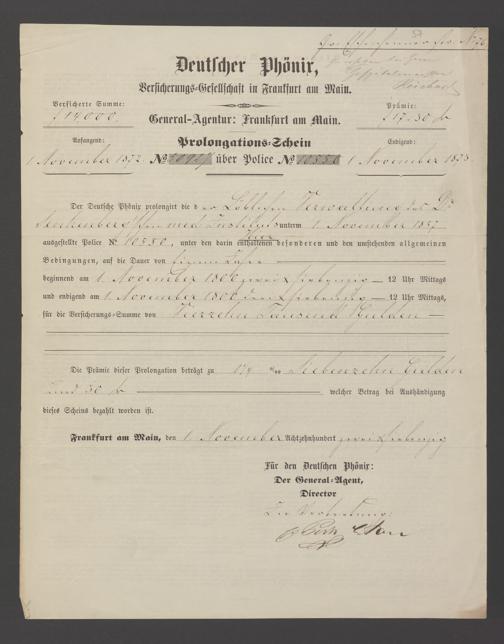 Deutscher Phönix,
Versicherungs-Gesellschaft in Frankfurt am Main.
Versicherte Summe:
f 14000.
General-Agentur: Frankfurt am Main.
Prämie:
f 17.30 kr
Anfangend:
1 November 1872
Prolongations-Schein
№ über Police № 10550
Endigend:
1 November 1873
Der Deutsche Phönix prolongirt die der Löblichen Verwaltung des Dr
Senkenberg'schen med. Instituts unterm 1 November 1857
ausgestellte Police № 10550, unter den darin enthaltenen besonderen und den umstehenden allgemeinen
Bedingungen, auf die Dauer von einem Jahre
beginnend am 1 November 1800 zwei & siebenzig — 12 Uhr Mittags
und endigend am 1 November 1800 drei & siebenzig — 12 Uhr Mittags,
für die Versicherungs-Summe von Vierzehn Tausend Gulden —
Die Prämie dieser Prolongation beträgt zu 1¼ ‰ Siebenzehn Gulden
und 30 kr welcher Betrag bei Aushändigung
dieses Scheins bezahlt worden ist.
Frankfurt am Main, den 1 November Achtzehnhundert zwei & siebenzig
Für den Deutschen Phönix:
Der General-Agent,
Director
In Vertretung: